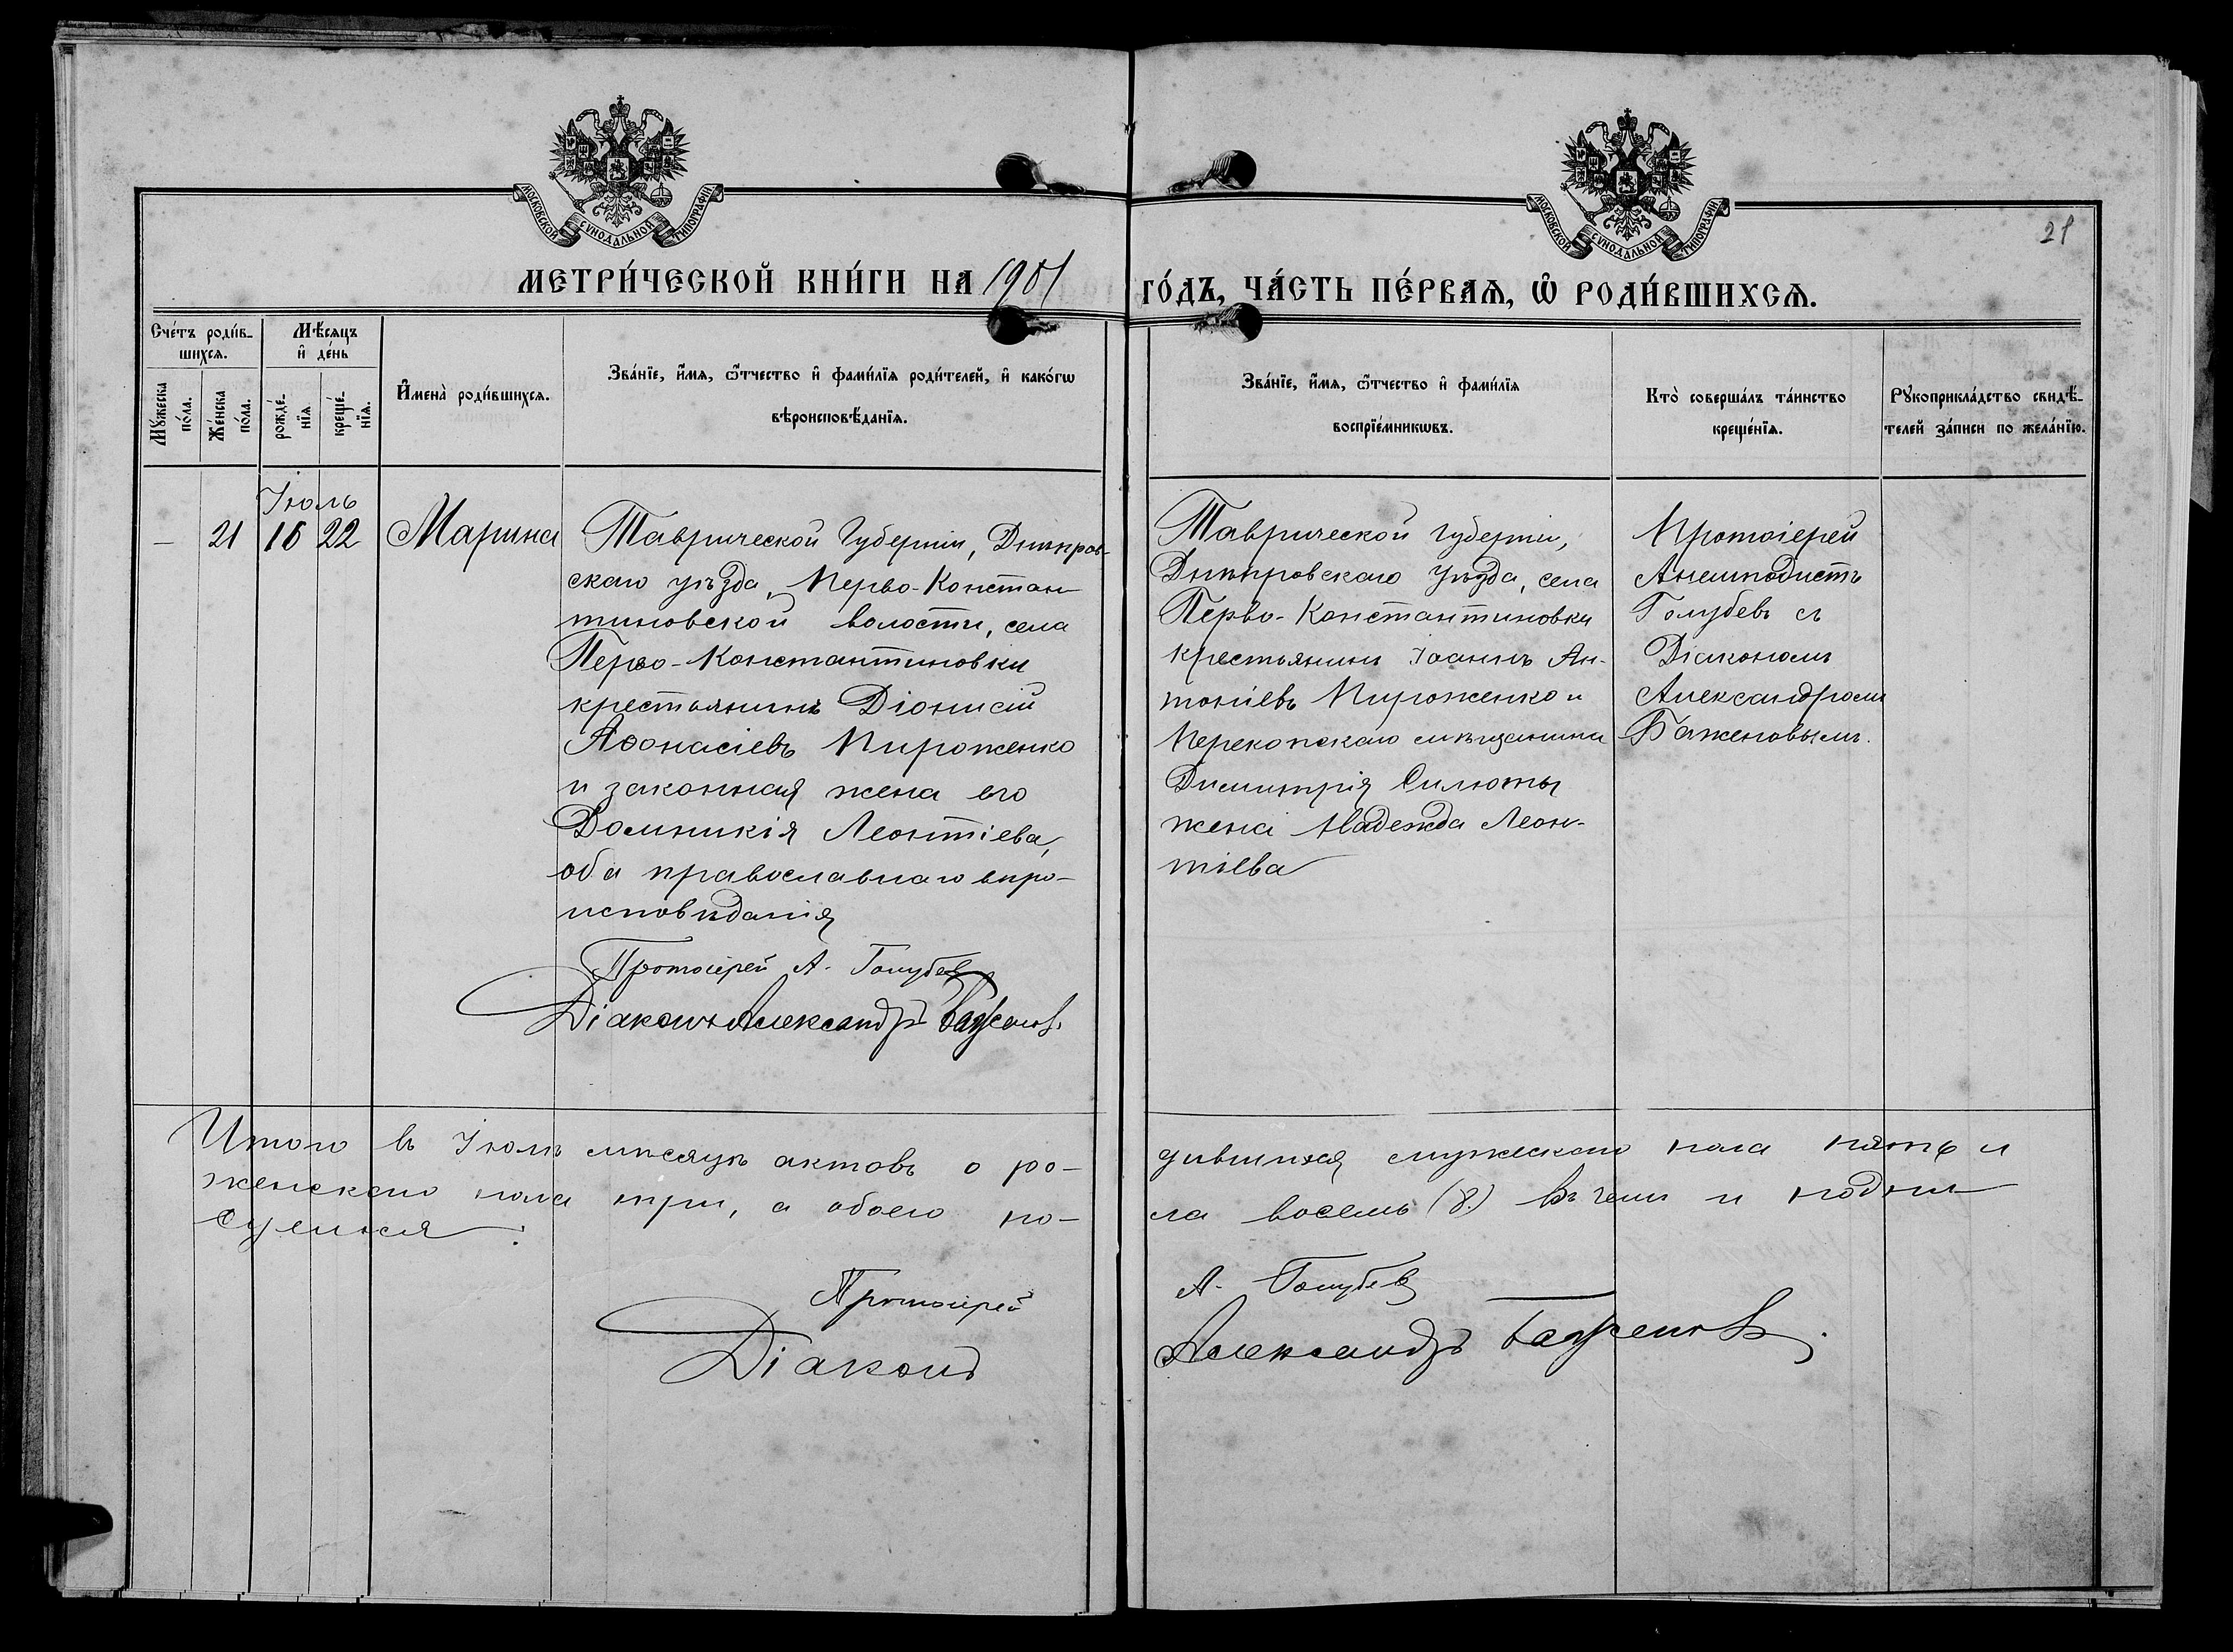 МОСКОВСКОЙ СУНОДАЛЬНОЙ ТИПОГРАФІИ
МОСКОВСКОЙ СУНОДАЛЬНОЙ ТИПОГРАФІИ
21
МЕТРИ́ЧЕСКОЙ КНИ́ГИ НА 1901
ГО́ДЪ, ЧА́СТЬ ПЕ́РВАѦ, Ѡ РОДИ́ВШИХСѦ.
Сче́тъ роди́в-
шихсѧ.
Мꙋжеска
по́ла.
Же́нска
по́ла.
Мѣ́сѧцъ
и҆ де́нь
рожде́-
нїѧ
креще́-
нїѧ.
И҆мена̀ роди́вшихсѧ.
Зва́нїе, и҆́мѧ, ѻ҆́тчество и҆ фами́лїѧ роди́телей, и҆ како́гѡ
вѣроисповѣ́данїѧ.
Зва́нїе, и҆́мѧ, ѻ҆́тчество и҆ фами́лїѧ
воспрїе́мникѡвъ.
Кто̀ соверша́лъ та́инство
креще́нїѧ.
Рꙋкоприкла́дство свидѣ́-
телей за́писи по жела́нїю.
Іюль
— 21 16 22 Марина
Таврической Губерніи, Днѣпров-
скаго уѣзда, Перво-Констан-
тиновской волости, села
Перво-Константиновки
крестьянинъ Діонисій
Аѳонасіевъ Пироженко
и законная жена его
Домникія Леонтіева,
оба православнаго вѣро-
исповѣданія
Протоіерей А. Голубев
Діаконъ Александръ Баженовъ
Таврической губерніи,
Днѣпровскаго уѣзда, села
Перво-Константиновки
крестьянинъ Іоаннъ Ан-
тоніевъ Пироженко и
Перекопскаго мѣщанина
Димитрія Силюты
жена Надежда Леон-
тіева
Протоіерей
Анемподистъ
Голубевъ съ
Діакономъ
Александромъ
Баженовымъ.
Итого въ Іюлѣ мѣсяцѣ актовъ о ро-
женскаго пола три, а обоего по-
суемся.
дившихся мужескаго пола пять и
ла восемь (8.) въ чемъ и подпи-
Протоіерей А. Голубев
Діаконъ Александръ Баженовъ.